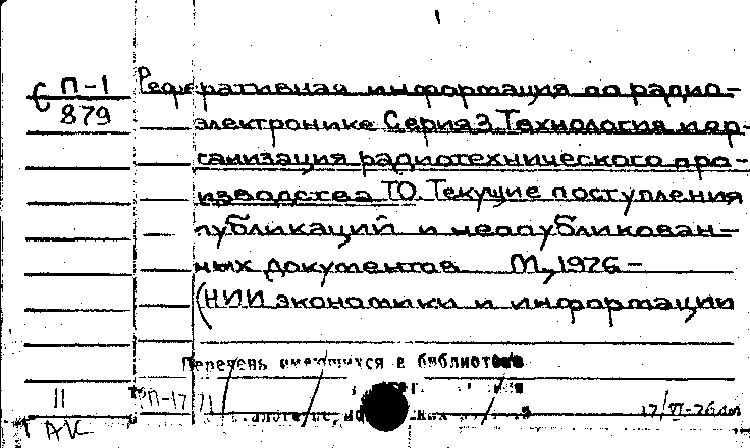 П-1
879
Реферативная информация по радио-
электронике Серия 3. Технология и ор-
ганизация радиотехнического про-
изводства ТО. Текущие поступления
публикаций и неопубликован-
ных документов М., 1976 -
(НИИ экономики и информации
Перечень имеющихся в библиотеке
11
П-17
17/VI-76
АК